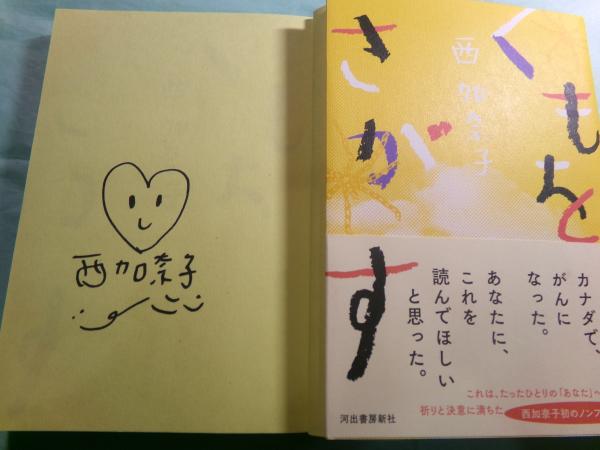 西加奈子
くもを
さがす
西加奈子
カナダで、
がんに
なった。
あなたに、
これを
読んでほしい
と思った。
これは、たったひとりの「あなた」へ
祈りと決意に満ちた
西加奈子初のノンフ
河出書房新社